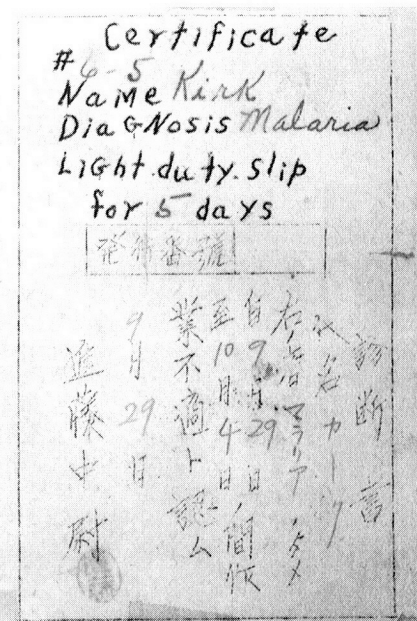 Certificate
# 6-5
Name Kirk
DiaGNosis Malaria
Light.duty.slip
for 5 days
番號
診断書
氏名 カーク
右者マラリアノタメ
自9月29日
至10月4日ノ間作
業不適ト認ム
9月29日
進藤中尉